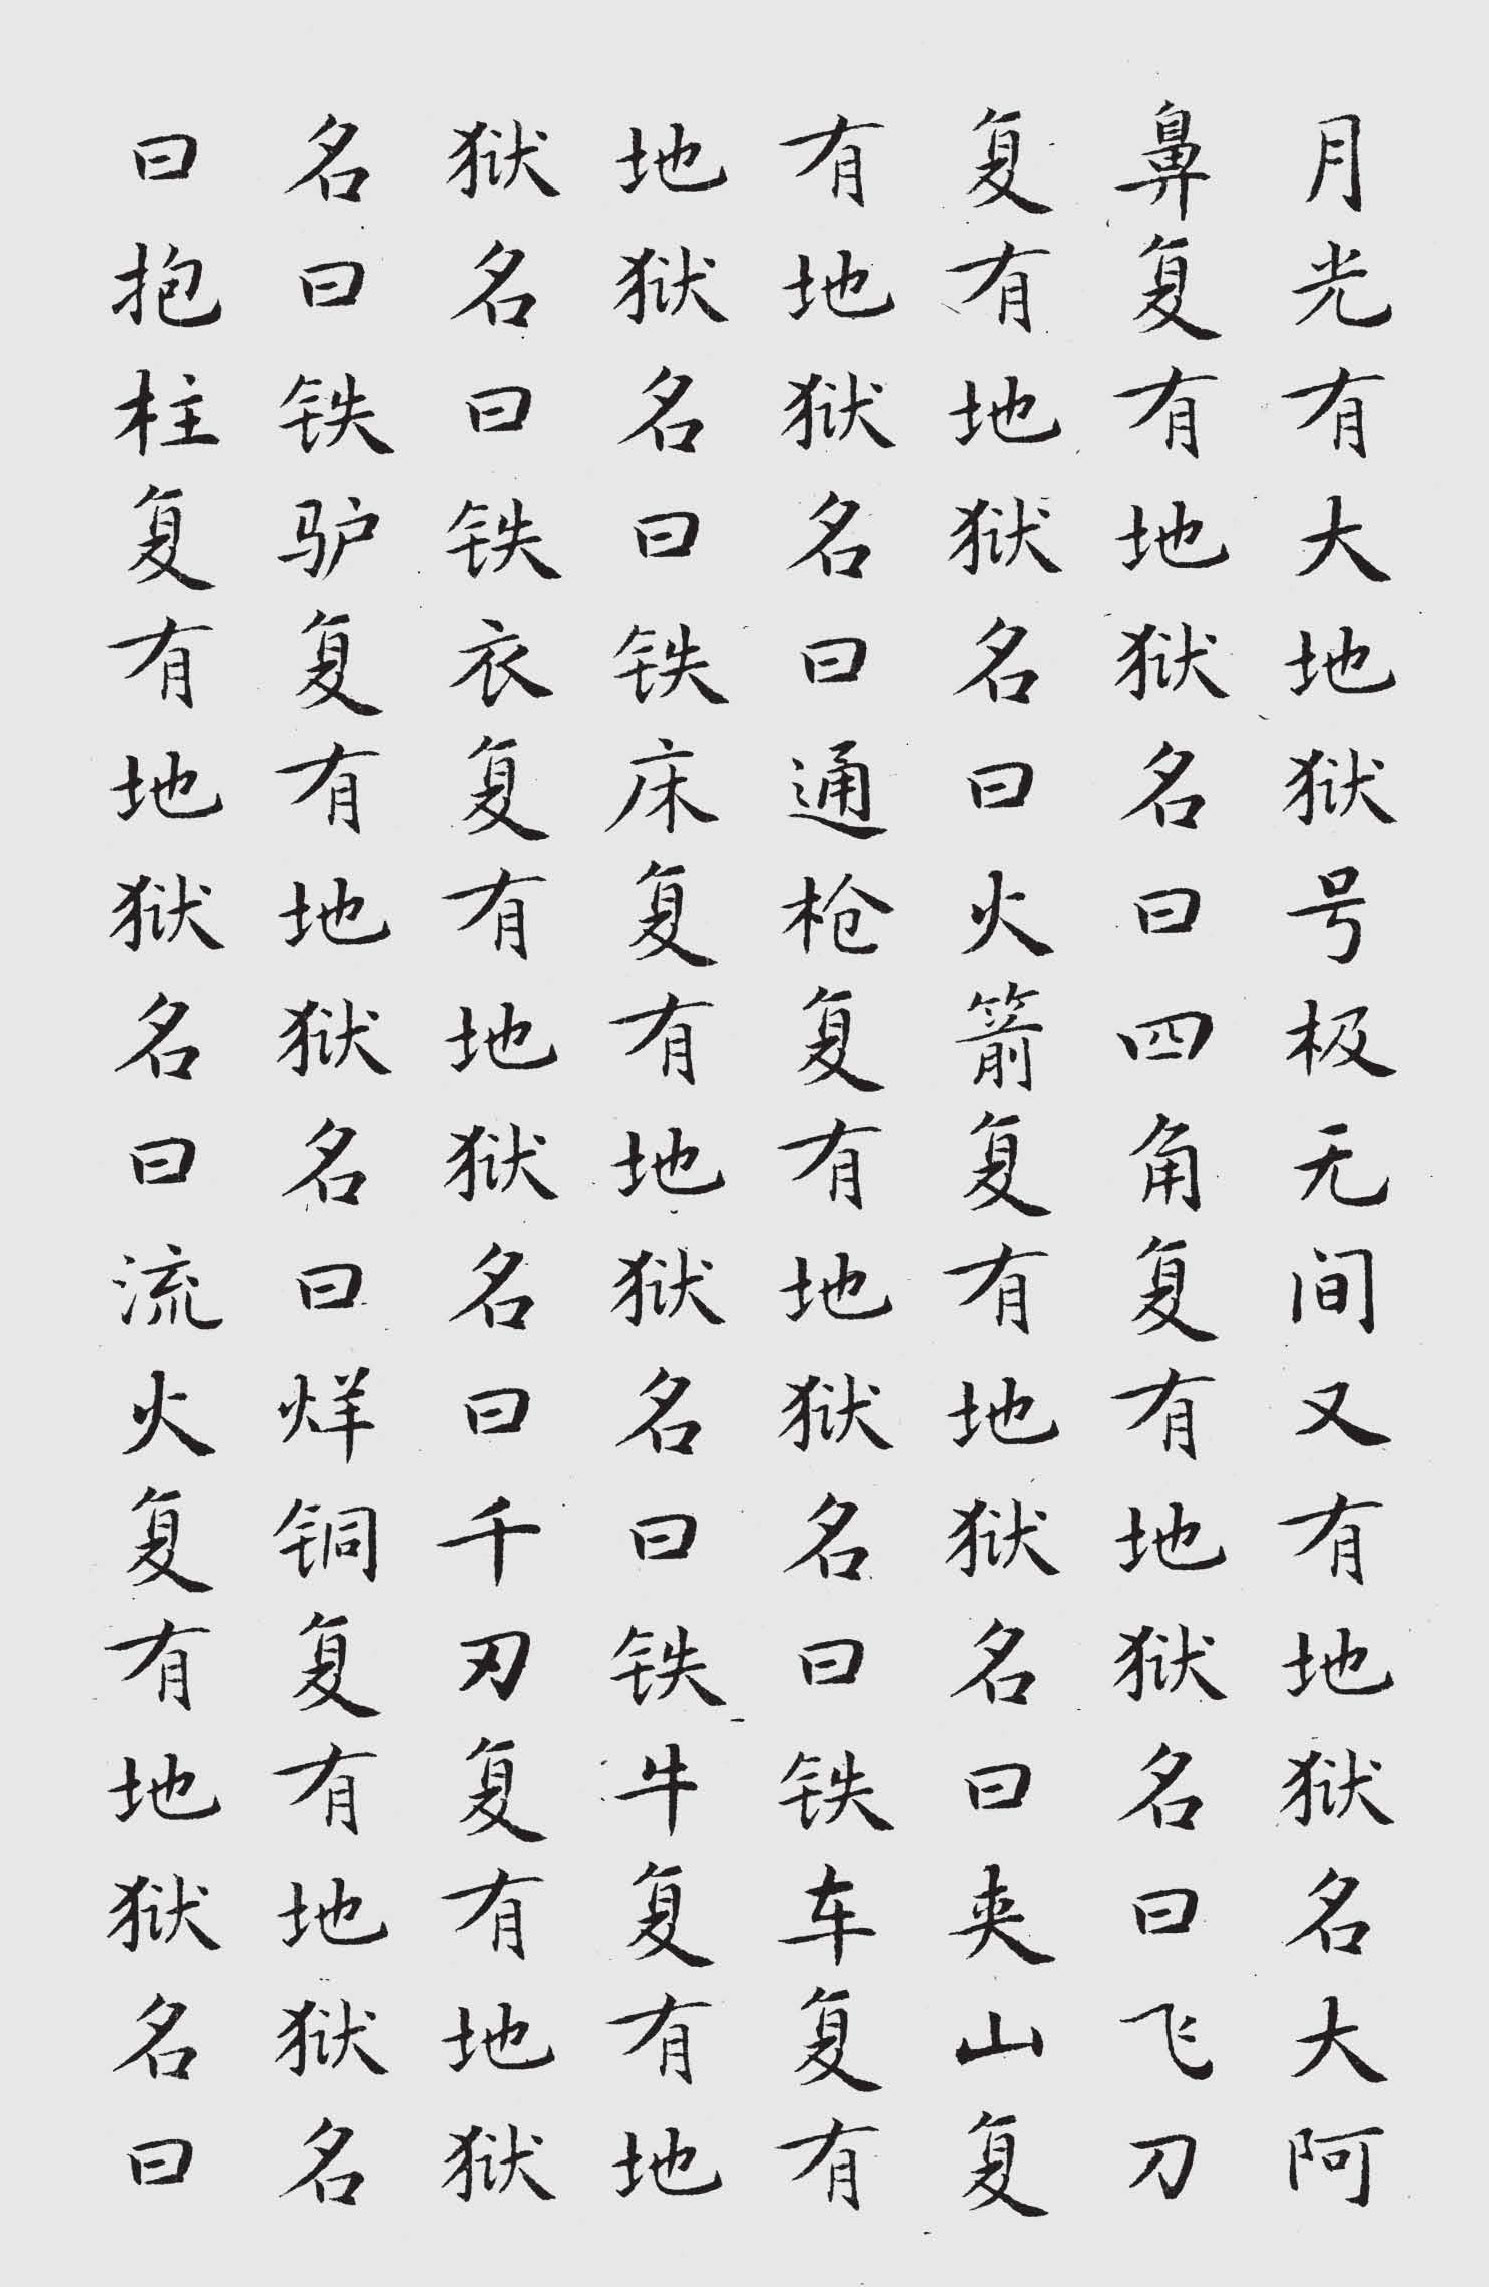 月光有大地狱号极无间又有地狱名大阿
鼻复有地狱名曰四角复有地狱名曰飞刀
复有地狱名曰火箭复有地狱名曰夹山复
有地狱名曰通枪复有地狱名曰铁车复有
地狱名曰铁床复有地狱名曰铁牛复有地
狱名曰铁衣复有地狱名曰千刃复有地狱
名曰铁驴复有地狱名曰烊铜复有地狱名
曰抱柱复有地狱名曰流火复有地狱名曰